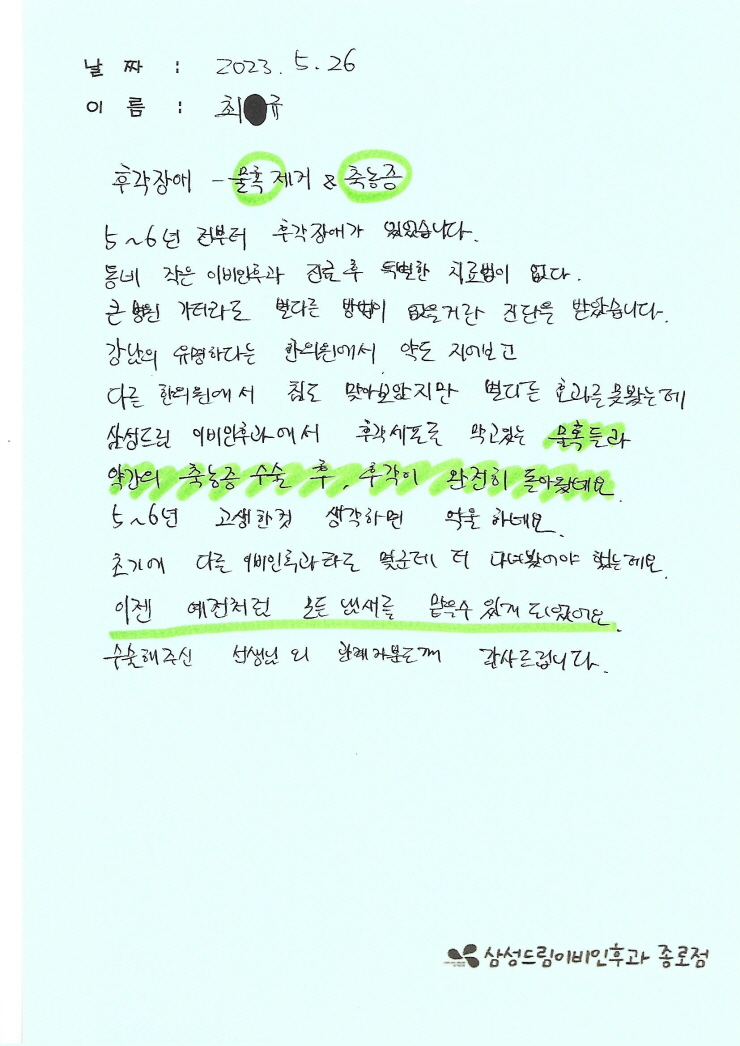 날 짜 : 2023. 5. 26
이 름 : 최 규
후각장애 - 물혹 제거 & 축농증
5~6년 전부터 후각장애가 있었습니다.
동네 작은 이비인후과 진료후 특별한 치료법이 없다.
큰 병원 가더라도 별다른 방법이 없을거란 진단을 받았습니다.
강남의 유명하다는 한의원에서 약도 지어보고
다른 한의원에서 침도 맞아보았지만 별다른 효과를 못봤는데
삼성드림 이비인후과에서 후각세포를 막고있는 물혹들과
약간의 축농증 수술 후, 후각이 완전히 돌아왔네요.
5~6년 고생한것 생각하면 억울 하네요.
초기에 다른 이비인후과라도 몇군데 더 다녀봤어야 했는데요.
이젠 예전처럼 모든 냄새를 맡을수 있게 되었어요.
수술해주신 선생님 외 관계자분들께 감사드립니다.
삼성드림이비인후과 종로점